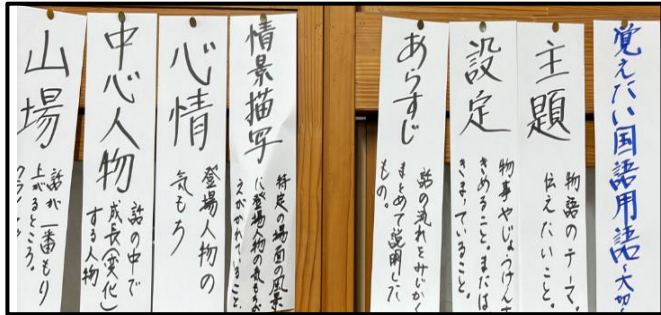 覚えたい国語用語～大切
主題
物語のテーマ。
伝えたいこと。
設定
物事やじょうけんを
きめること。または
きまっていること。
あらすじ
話の流れをみじかく
まとめて説明した
もの。
情景描写
特定の場面の風景
に登場人物の気もちが
えがかれていること。
心情
登場人物の
気もち
中心人物
話の中で
成長（変化）
する人物
山場
話が一番もり
上がるところ。